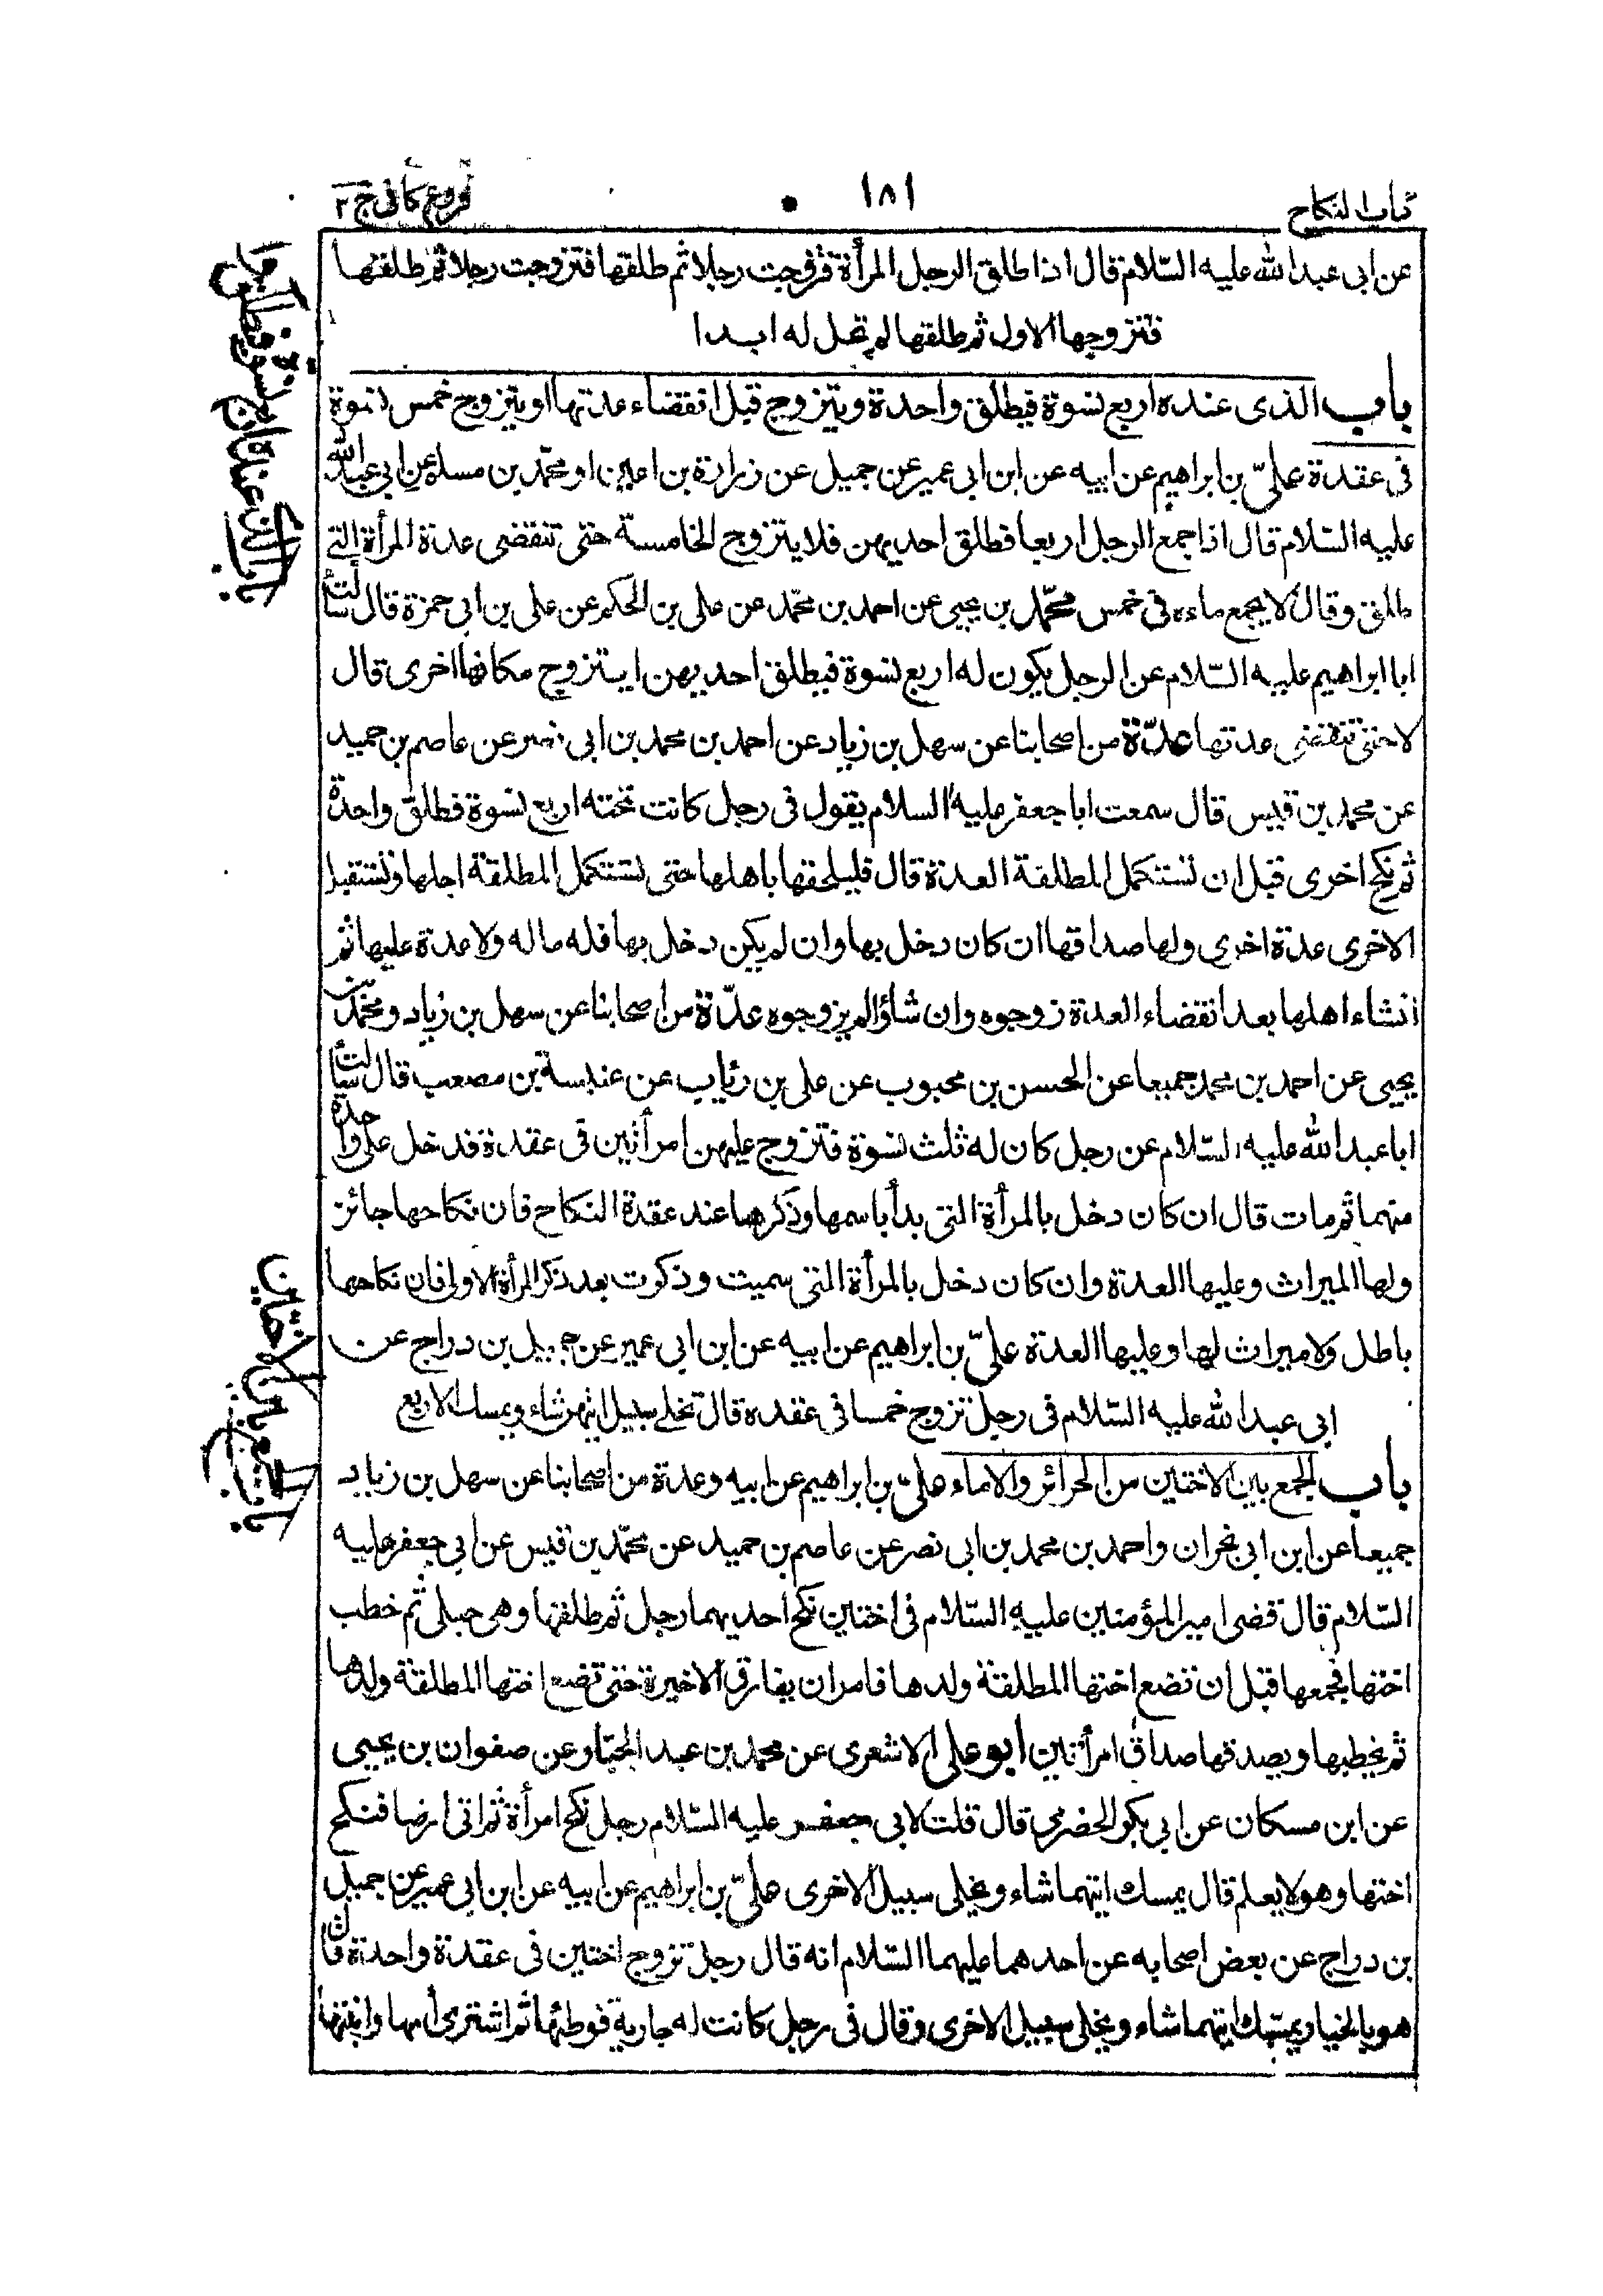 كتاب النكاح
١٨١
فروع كافى ج ٢
عن ابى عبد الله عليه السّلام قال اذا طلق الرجل المرأة فتزوجت رجلا ثم طلقها فتزوجت رجلا ثم طلقها
فتزوجها الاول ثم طلقها لم تحل له ابدا
باب الذى عنده اربع نسوة فيطلق واحدة ويتزوج قبل انقضاء عدتها او يتزوج خمس نسوة
فى عقدة علىّ بن ابراهيم عن ابيه عن ابن ابى عمير عن جميل عن زرارة بن اعين او محمّد بن مسلم عن ابى عبد الله
عليه السّلام قال اذا جمع الرجل اربعا فطلق احديهن فلا يتزوج الخامسة حتى تنقضى عدة المرأة التى
طلق وقال لا يجمع ماءه فى خمس محمّد بن يحيى عن احمد بن محمّد عن على بن الحكم عن على بن ابى حمزة قال سألت
ابا ابراهيم عليه السّلام عن الرجل يكون له اربع نسوة فيطلق احديهن ايتزوج مكانها اخرى قال
لا حتى تنقضى عدتها عدّة من اصحابنا عن سهل بن زياد عن احمد بن محمد بن ابى نصر عن عاصم بن حميد
عن محمد بن قيس قال سمعت ابا جعفر عليه السلام يقول فى رجل كانت تحته اربع نسوة فطلق واحدة
ثم نكح اخرى قبل ان تستكمل المطلقة العدة قال فليلحقها باهلها حتى تستكمل المطلقة اجلها وتستقبل
الاخرى عدة اخرى ولها صداقها ان كان دخل بها وان لم يكن دخل بها فله ماله ولا عدة عليها ثم
انشاء اهلها بعد انقضاء العدة زوجوه وان شاؤا لم يزوجوه عدّة من اصحابنا عن سهل بن زياد ومحمّد بن
يحيى عن احمد بن محمد جميعا عن الحسن بن محبوب عن على بن رئاب عن عنبسة بن مصعب قال سألت
ابا عبد الله عليه السّلام عن رجل كان له ثلث نسوة فتزوج عليهن امرأتين فى عقدة فدخل على واحدة
منهما ثم مات قال ان كان دخل بالمرأة التى بدأ باسمها وذكرها عند عقدة النكاح فان نكاحها جائز
ولها الميراث وعليها العدة وان كان دخل بالمرأة التى سميت وذكرت بعد ذكر المرأة الاولى فان نكاحها
باطل ولا ميراث لها وعليها العدة علىّ بن ابراهيم عن ابيه عن ابن ابى عمير عن جميل بن دراج عن
ابى عبد الله عليه السّلام فى رجل تزوج خمسا فى عقدة قال تخلى سبيل ايتهن شاء ويمسك الاربع
باب الجمع بين الاختين من الحرائر والاماء علىّ بن ابراهيم عن ابيه وعدة من اصحابنا عن سهل بن زياد
جميعا عن ابن ابى نجران واحمد بن محمد بن ابى نصر عن عاصم بن حميد عن محمّد بن قيس عن ابى جعفر عليه
السّلام قال قضى امير المؤمنين عليه السّلام فى اختين نكح احديهما رجل ثم طلقها وهى حبلى ثم خطب
اختها فجمعها قبل ان تضع اختها المطلقة ولدها فامر ان يفارق الاخيرة حتى تضع اختها المطلقة ولدها
ثم يخطبها ويصدقها صداق امرأتين ابو على الاشعرى عن محمد بن عبد الجبّار عن صفوان بن يحيى
عن ابن مسكان عن ابى بكر الحضرمى قال قلت لابى جعفر عليه السّلام رجل نكح امرأة ثم اتى ارضا فنكح
اختها وهو لا يعلم قال يمسك ايتهما شاء ويخلى سبيل الاخرى علىّ بن ابراهيم عن ابيه عن ابن ابى عمير عن جميل
بن دراج عن بعض اصحابه عن احدهما عليهما السّلام انه قال رجل تزوج اختين فى عقدة واحدة قال
هو بالخيار يمسك ايتهما شاء ويخلى سبيل الاخرى وقال فى رجل كانت له جارية فوطئها ثم اشترى امها وابنتها
باب الذى عنده اربع نسوة فيطلق
باب الجمع بين الاختين